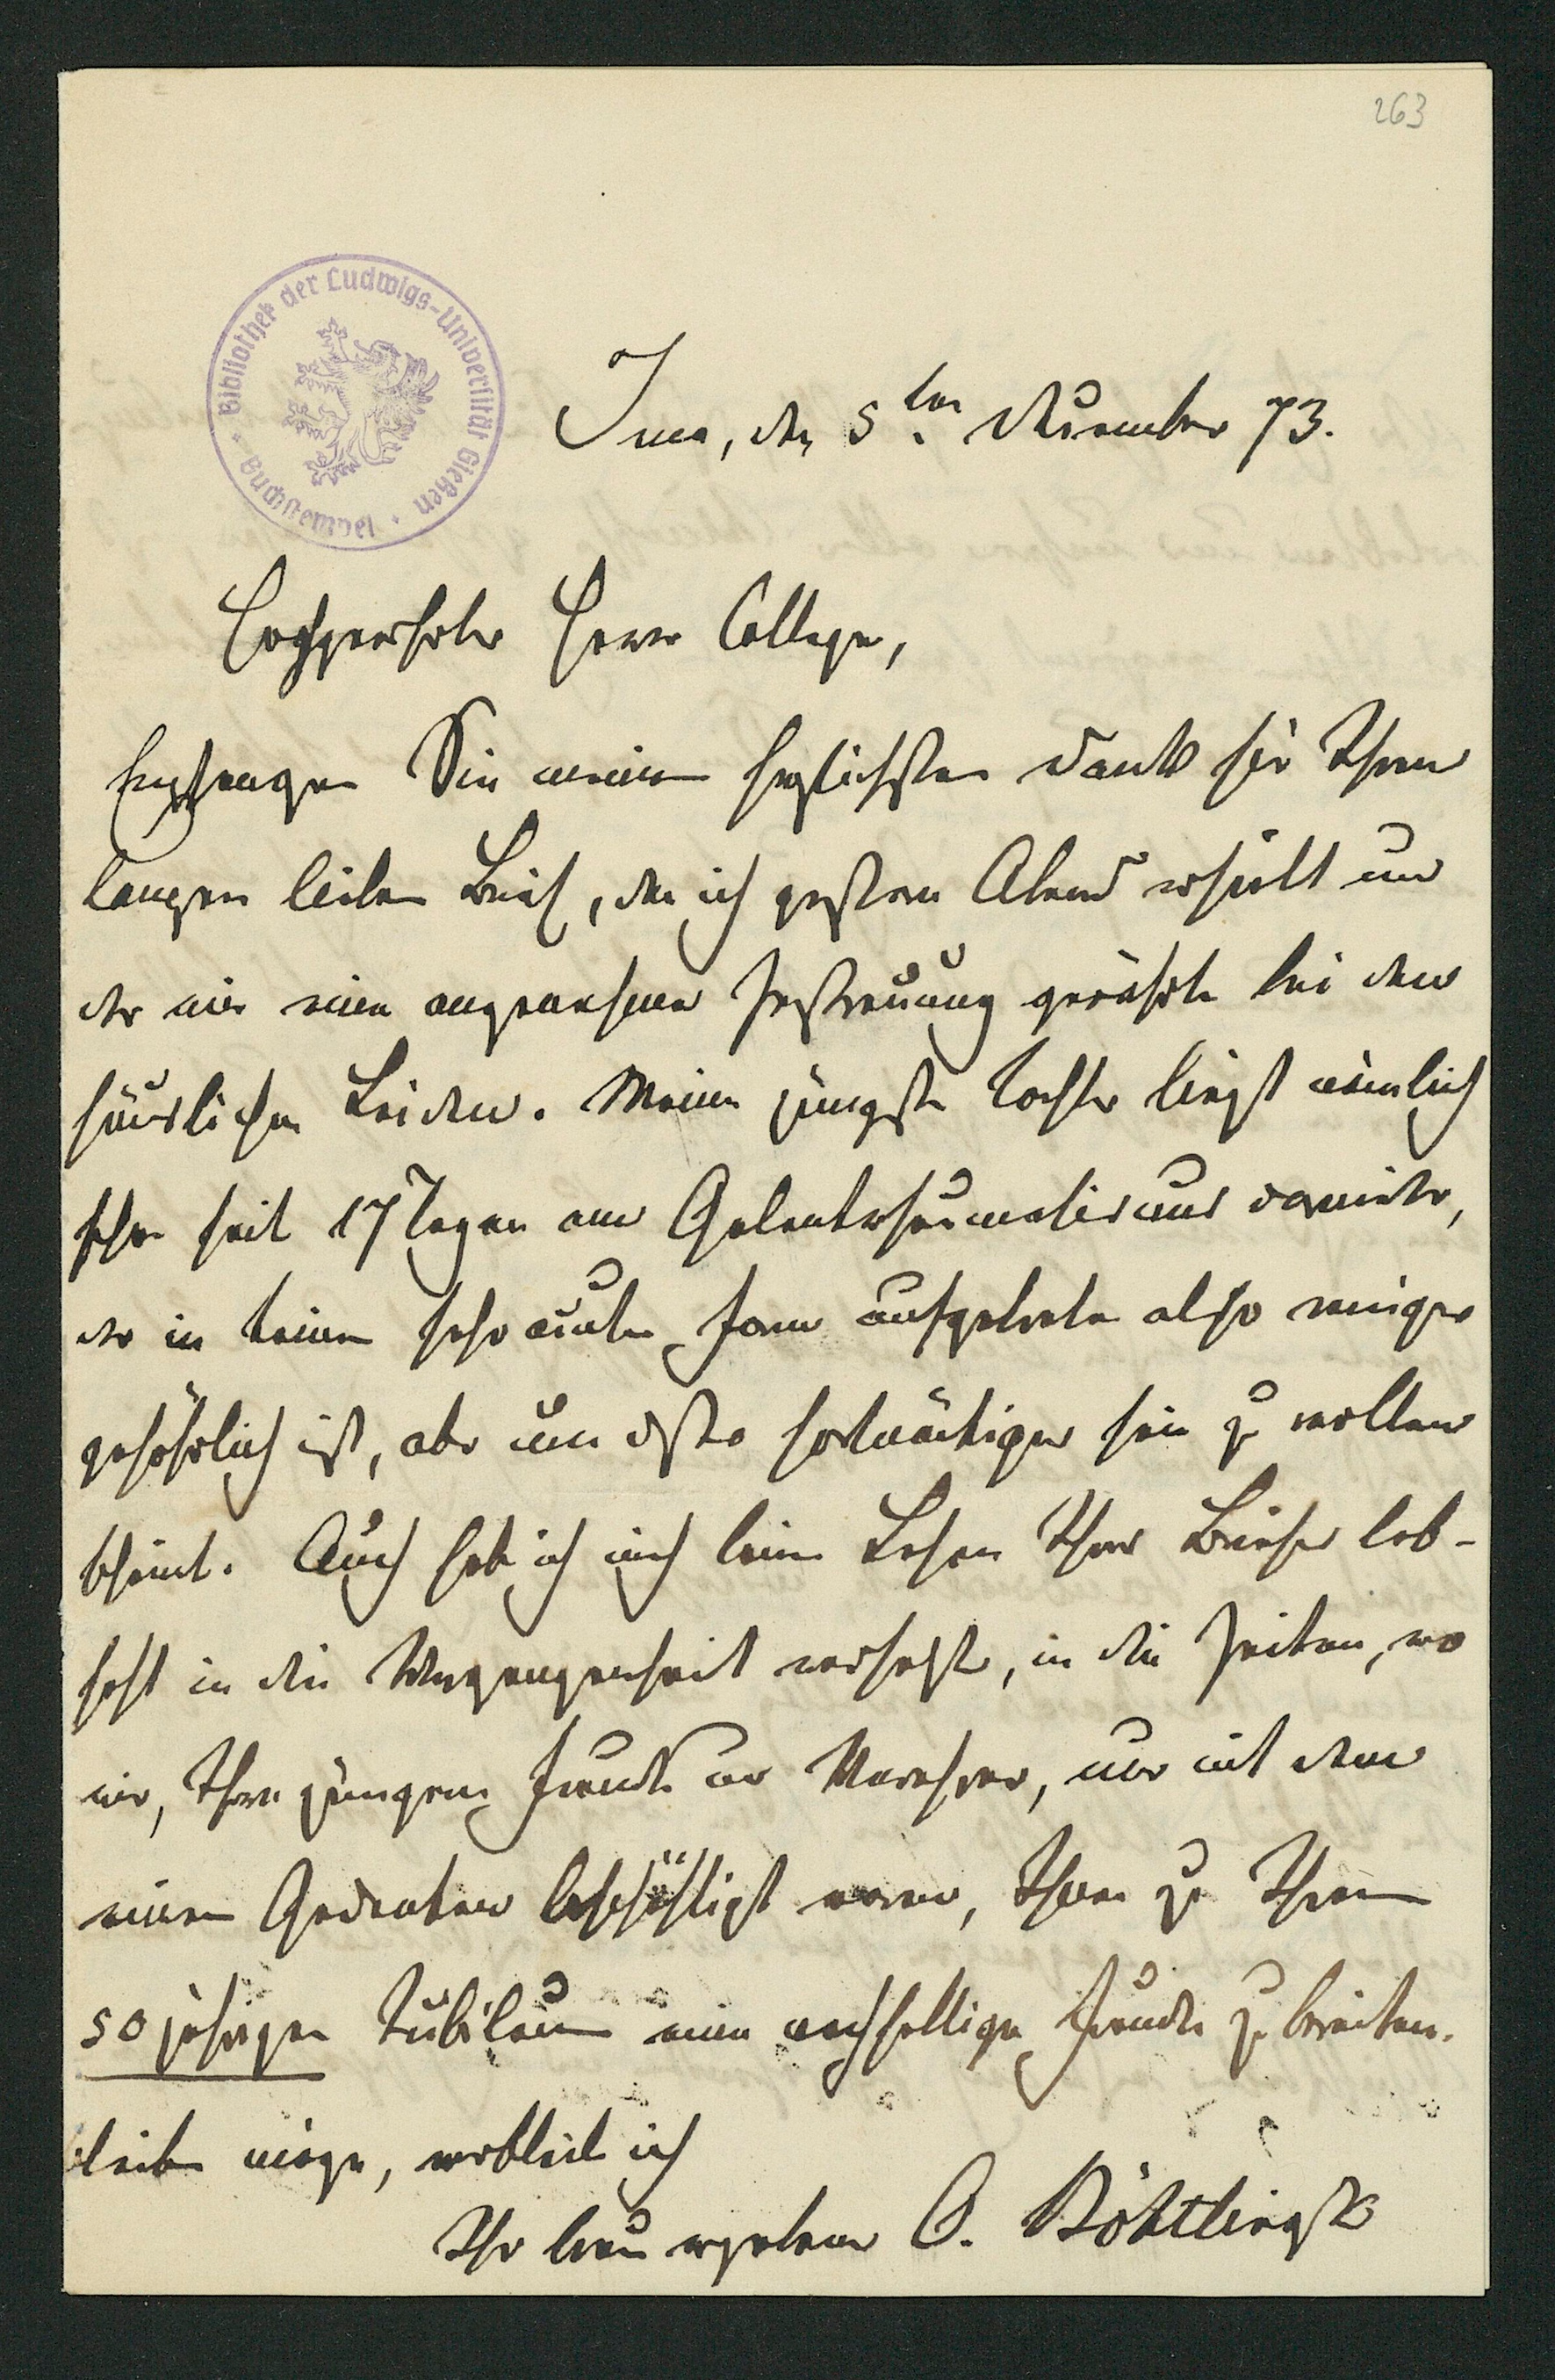 263
Bibliothek der Ludwigs-Universität Gießen
Buchstempel
Jena, den 5ten December 73.
Hochgeehrter Herr College,
Empfangen Sie meinen herzlichsten Dank für Ihren
langen lieben Brief, den ich gestern Abend erhielt und
der mir eine angenehme Zerstreuung gewährte bei den
häuslichen Leiden. Meine jüngste Tochter liegt nämlich
schon seit 17 Tagen am Gelenkrheumatismus darnieder,
der in keiner sehr acuten Form aufgetreten also weniger
gefährlich ist, aber um desto hartnäckiger sein zu wollen
scheint. Auch habe ich mich beim Lesen Ihres Briefes leb-
haft in die Vergangenheit versetzt, in die Zeiten, wo
wir, Ihre jüngern Freunde und Verehrer, nur mit dem
einen Gedanken beschäftigt waren, Ihnen zu Ihrem
50 jährigen Jubiläum eine nachhaltige Freude zu bereiten.
bleiben möge, verbleibe ich
Ihr treu ergebener O. Böhtlingk